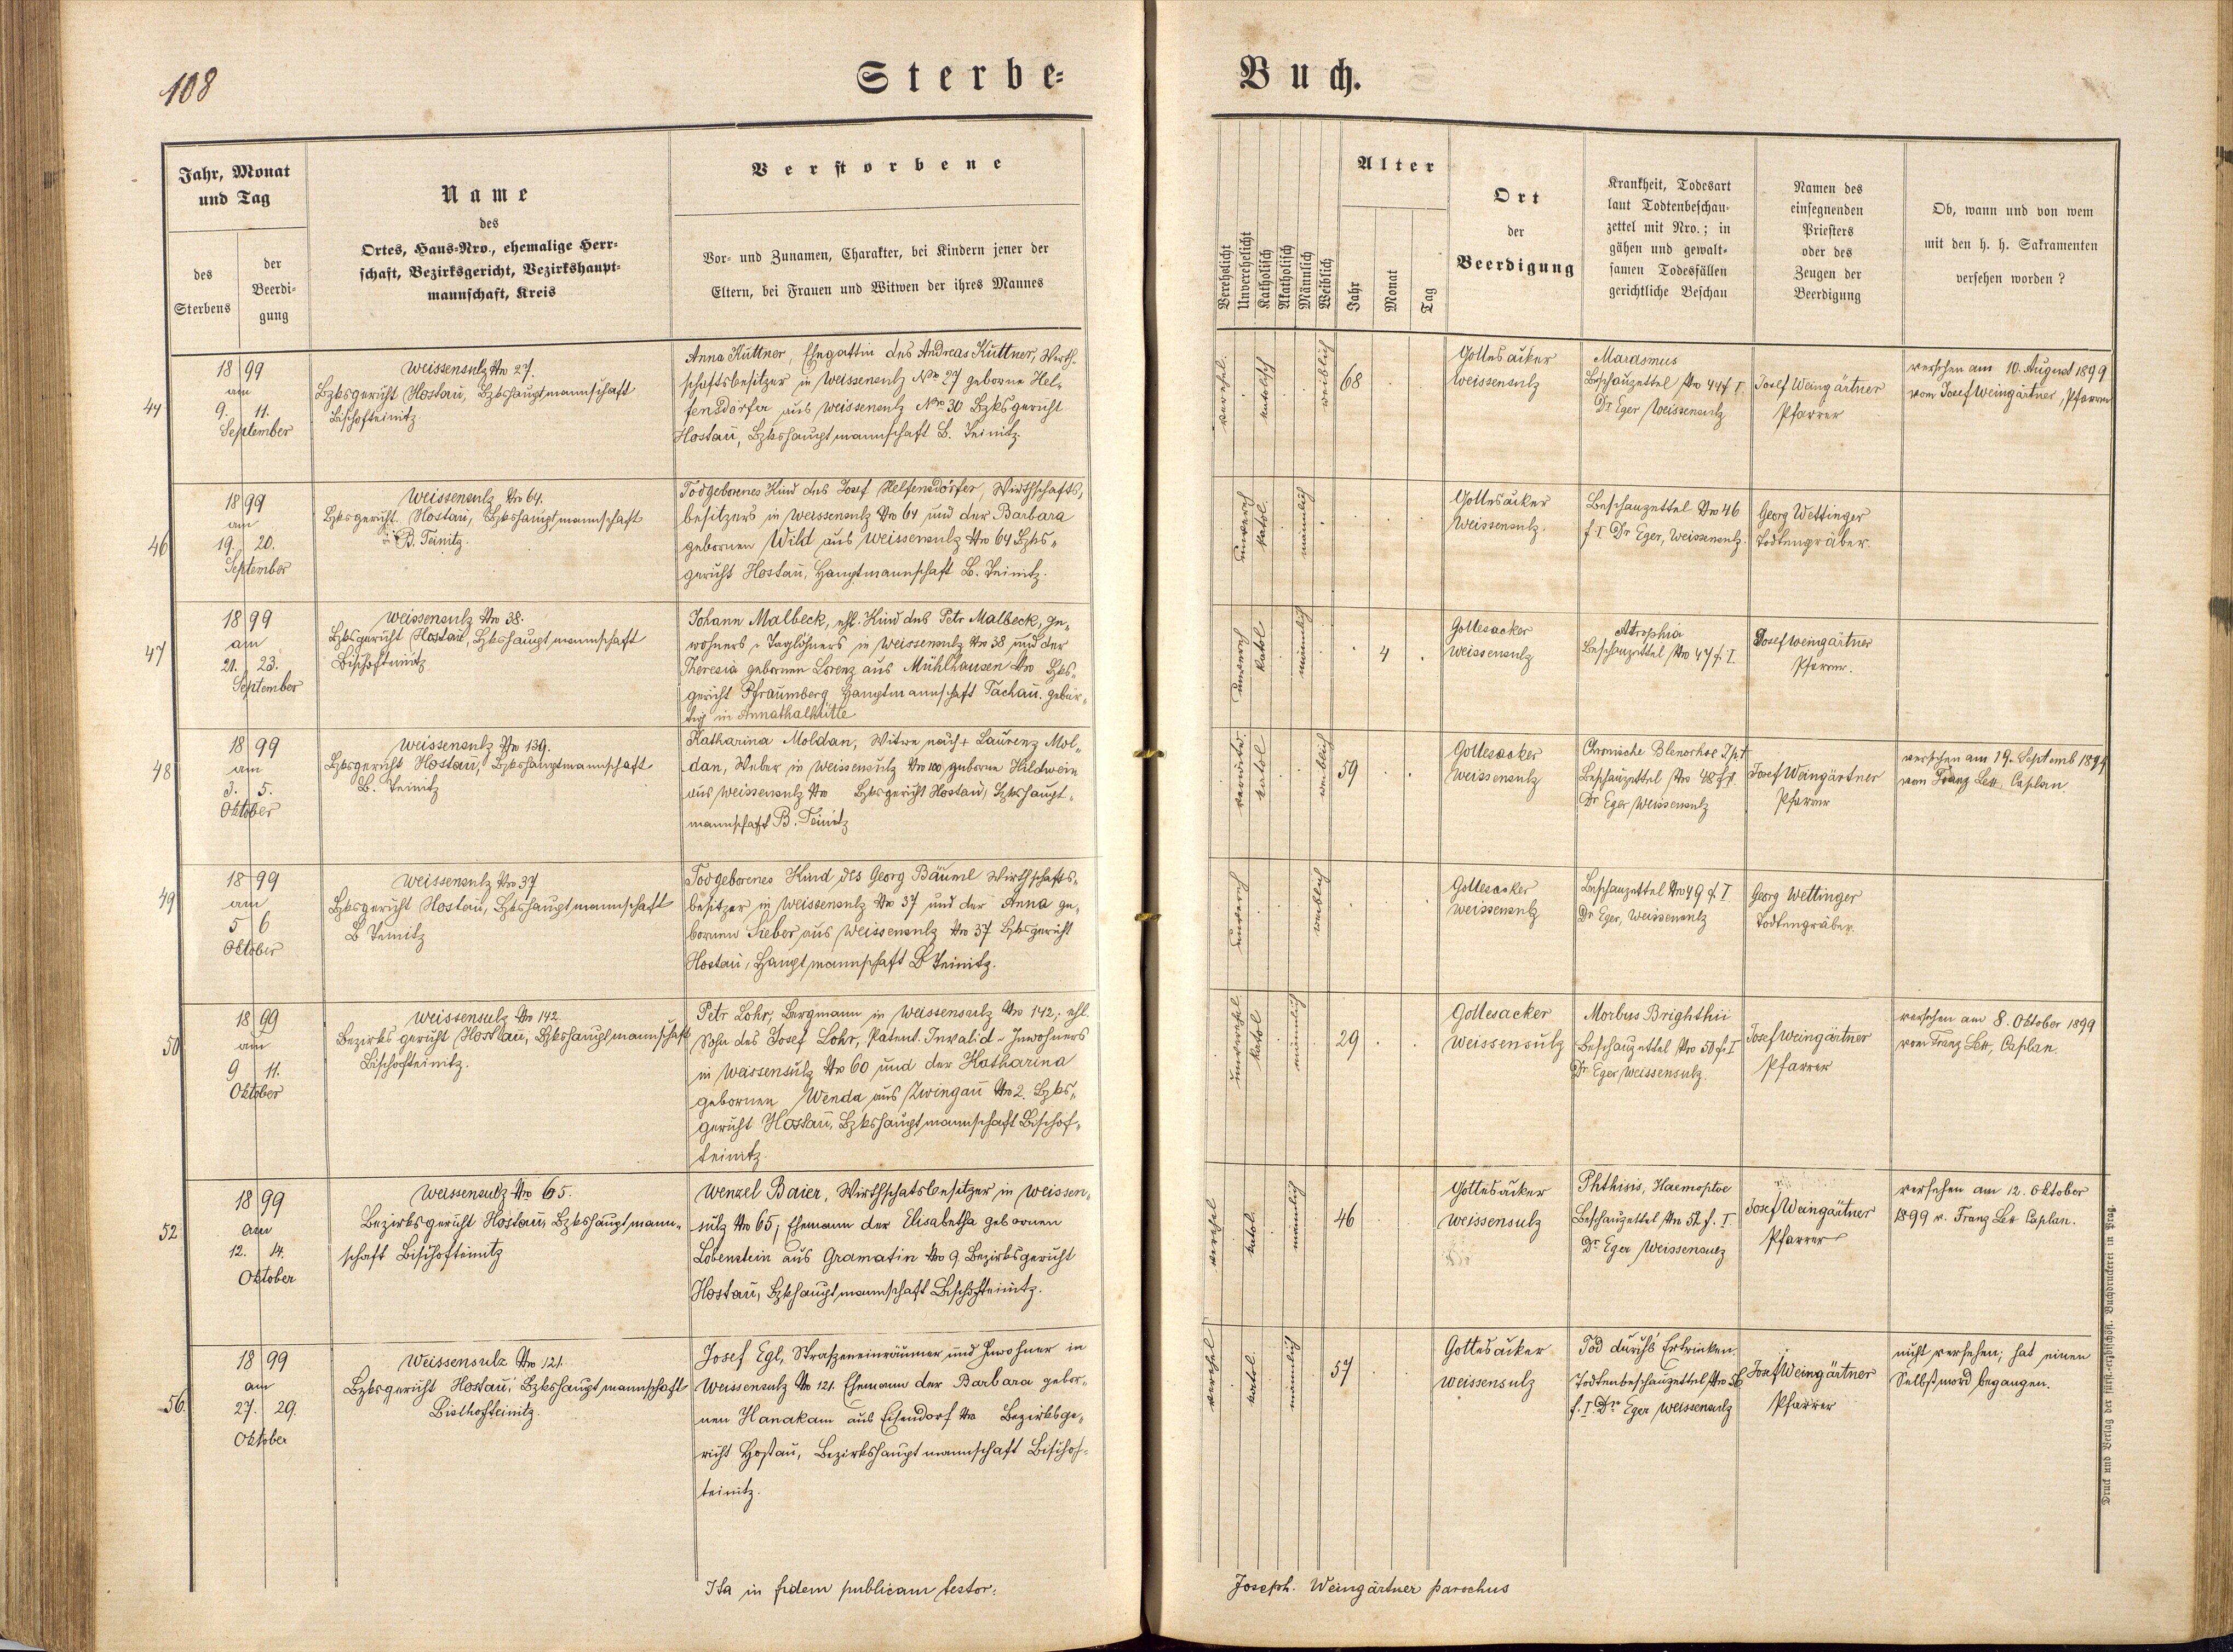 108
Sterbe-
Buch.
Jahr, Monat
und Tag
des
Sterbens
der
Beerdi-
gung
Name
des
Ortes, Haus-Nro., ehemalige Herr-
schaft, Bezirksgericht, Bezirkshaupt-
mannschaft, Kreis
Verstorbene
Vor- und Zunamen, Charakter, bei Kindern jener der
Eltern, bei Frauen und Witwen der ihres Mannes
Verehelicht
Unverehelicht
Katholisch
Akatholisch
Männlich
Weiblich
Alter
Jahr
Monat
Tag
Ort
der
Beerdigung
Krankheit, Todesart
laut Todtenbeschau-
zettel mit Nro.; in
gähen und gewalt-
samen Todesfällen
gerichtliche Beschau
Namen des
einsegnenden
Priesters
oder des
Zeugen der
Beerdigung
Ob, wann und von wem
mit den h. h. Sakramenten
versehen worden?
44
1899
am
9. 11.
September
Weissensulz Nro 27.
Bzksgericht Hostau, Bzkshauptmannschaft
Bischofteinitz
Anna Küttner, Ehegattin des Andreas Küttner, Wirth-
schaftsbesitzer in Weissensulz Nro 27 geborne Hel-
fensdörfer aus Weissensulz Nro 30 Bzksgericht
Hostau, Bzkshauptmannschaft B. Teinitz.
verehel.
katolisch
weiblich
68
Gottesacker
Weissensulz
Marasmus
Beschauzettel Nro 44 f. I
Dr Eger Weissensulz
Josef Weingärtner
Pfarrer
versehen am 10. August 1899
vom Josef Weingärtner, Pfarrer
46
1899
am
19. 20.
September
Weissensulz Nro 64.
Bzksgericht Hostau, Bzkshauptmannschaft
B. Teinitz.
Todgeborenes Kind des Josef Helfensdörfer, Wirthschafts-
besitzers in Weissensulz Nro 64 und der Barbara
gebornen Wild aus Weissensulz Nro 64 Bzks-
gericht Hostau, Hauptmannschaft B. Teinitz.
unvereh
katol.
männlich
Gottesacker
Weissensulz.
Beschauzettel Nro 46
f. I Dr Eger, Weissensulz.
Georg Wettinger
Todtengräber.
47
1899
am
21. 23.
September
Weissensulz Nro 38.
Bzksgericht Hostau, Bzkshauptmannschaft
Bischofteinitz
Johann Malbeck, ehl. Kind des Petr Malbeck, In-
wohners, Taglöhners in Weissensulz Nro 38 und der
Theresia gebornen Lorenz aus Mühlhausen Nro Bzks-
gericht Pfraumberg Hauptmannschaft Tachau. gebür-
tig in Annathalhütte
unvereh
katol
männlich
4
Gottesacker
Weissensulz
Atrophia
Beschauzettel Nro 47 f. I.
Josef Weingärtner
Pfarrer.
48
1899
am
3. 5.
Oktober
Weissensulz Nro 139.
Bzksgericht Hostau, Bzkshauptmannschaft
B. Teinitz
Katharina Moldan, Witwe nach + Laurenz Mol-
dan, Weber in Weissensulz Nro 100 geborne Hildwein
aus Weissensulz Nro Bzksgericht Hostau, Bzkshaupt-
mannschaft B. Teinitz
verwitw.
katol
weiblich
59
Gottesacker
Weissensulz
Chronische Blenorhoe
Beschauzettel Nro 48 f I.
Dr Eger Weissensulz
Josef Weingärtner
Pfarrer
versehen am 19. Septemb 1899
von Franz Lex, Caplan.
49
1899
am
5 6
Oktober
Weissensulz Nro 37
Bzksgericht Hostau, Bzkshauptmannschaft
B Teinitz
Todgeborenes Kind des Georg Bäuml Wirthschafts-
besitzer in Weissensulz Nro 37 und der Anna ge-
bornen Sieber aus Weissensulz Nro 37 Bzksgericht
Hostau, Hauptmannschaft B Teinitz.
unvereh
weiblich
Gottesacker
Weissensulz
Beschauzettel Nro 49 f. I
Dr Eger, Weissensulz
Georg Wettinger
Todtengräber.
50
1899
am
9 11.
Oktober
Weissensulz Nro 142.
Bezirksgericht Hostau, Bzkshauptmannschaft
Bischofteinitz.
Petr Lohr, Bergmann in Weissensulz Nro 142, ehl.
Sohn des Josef Lohr, Patent. Invalid - Inwohners
in Weissensulz Nro 60 und der Katharina
gebornen Wenda aus Zwingau Nro 2. Bzks-
gericht Hostau, Bzkshauptmannschaft Bischof-
teinitz.
unverehel
katol
männlich
29
Gottesacker
Weissensulz
Morbus Brighthii
Beschauzettel Nro 50 f. I
Dr Eger Weissensulz.
Josef Weingärtner
Pfarrer
versehen am 8. Oktober 1899
vom Franz Lex, Caplan.
52
1899
am
12. 14.
Oktober
Weissensulz Nro 65.
Bezirksgericht Hostau, Bzkshauptmann-
schaft Bischofteinitz
Wenzel Baier, Wirthschatsbesitzer in Weissen-
sulz Nro 65; Ehemann der Elisabetha gebornen
Lobenstein aus Gramatin Nro 9. Bezirksgericht
Hostau, Bzkhauptmannschaft Bischofteinitz.
verehel
katol.
männlich
46
Gottesacker
Weissensulz
Phthisis, Haemoptoe
Beschauzettel Nro 52 f. I.
Dr Eger Weissensulz
Josef Weingärtner
Pfarrer
versehen am 12. Oktober
1899 v. Franz Lex Caplan.
56.
1899
am
27. 29.
Oktober
Weissensulz Nro 121.
Bzksgericht Hostau, Bzkshauptmannschaft
Bischofteinitz.
Josef Egl, Straszeneinräumer und Inwohner in
Weissensulz Nro 121. Ehemann der Barbara gebor-
nen Hanakam aus Eisendorf Nro Bezirksge-
richt Hostau, Bezirkshauptmannschaft Bischof-
teinitz.
verehel
katol.
männlich
57
Gottesacker
Weissensulz
Tod durch's Ertrinken.
Todtenbeschauzettel Nro 56
f. I. Dr Eger Weissensulz
Josef Weingärtner
Pfarrer
nicht versehen; hat einen
Selbstmord begangen.
Ita in fidem publicam testor:
Joseph. Weingärtner parochus
Druck und Verlag der fürst-erzbischöfl. Buchdruckerei in Prag.